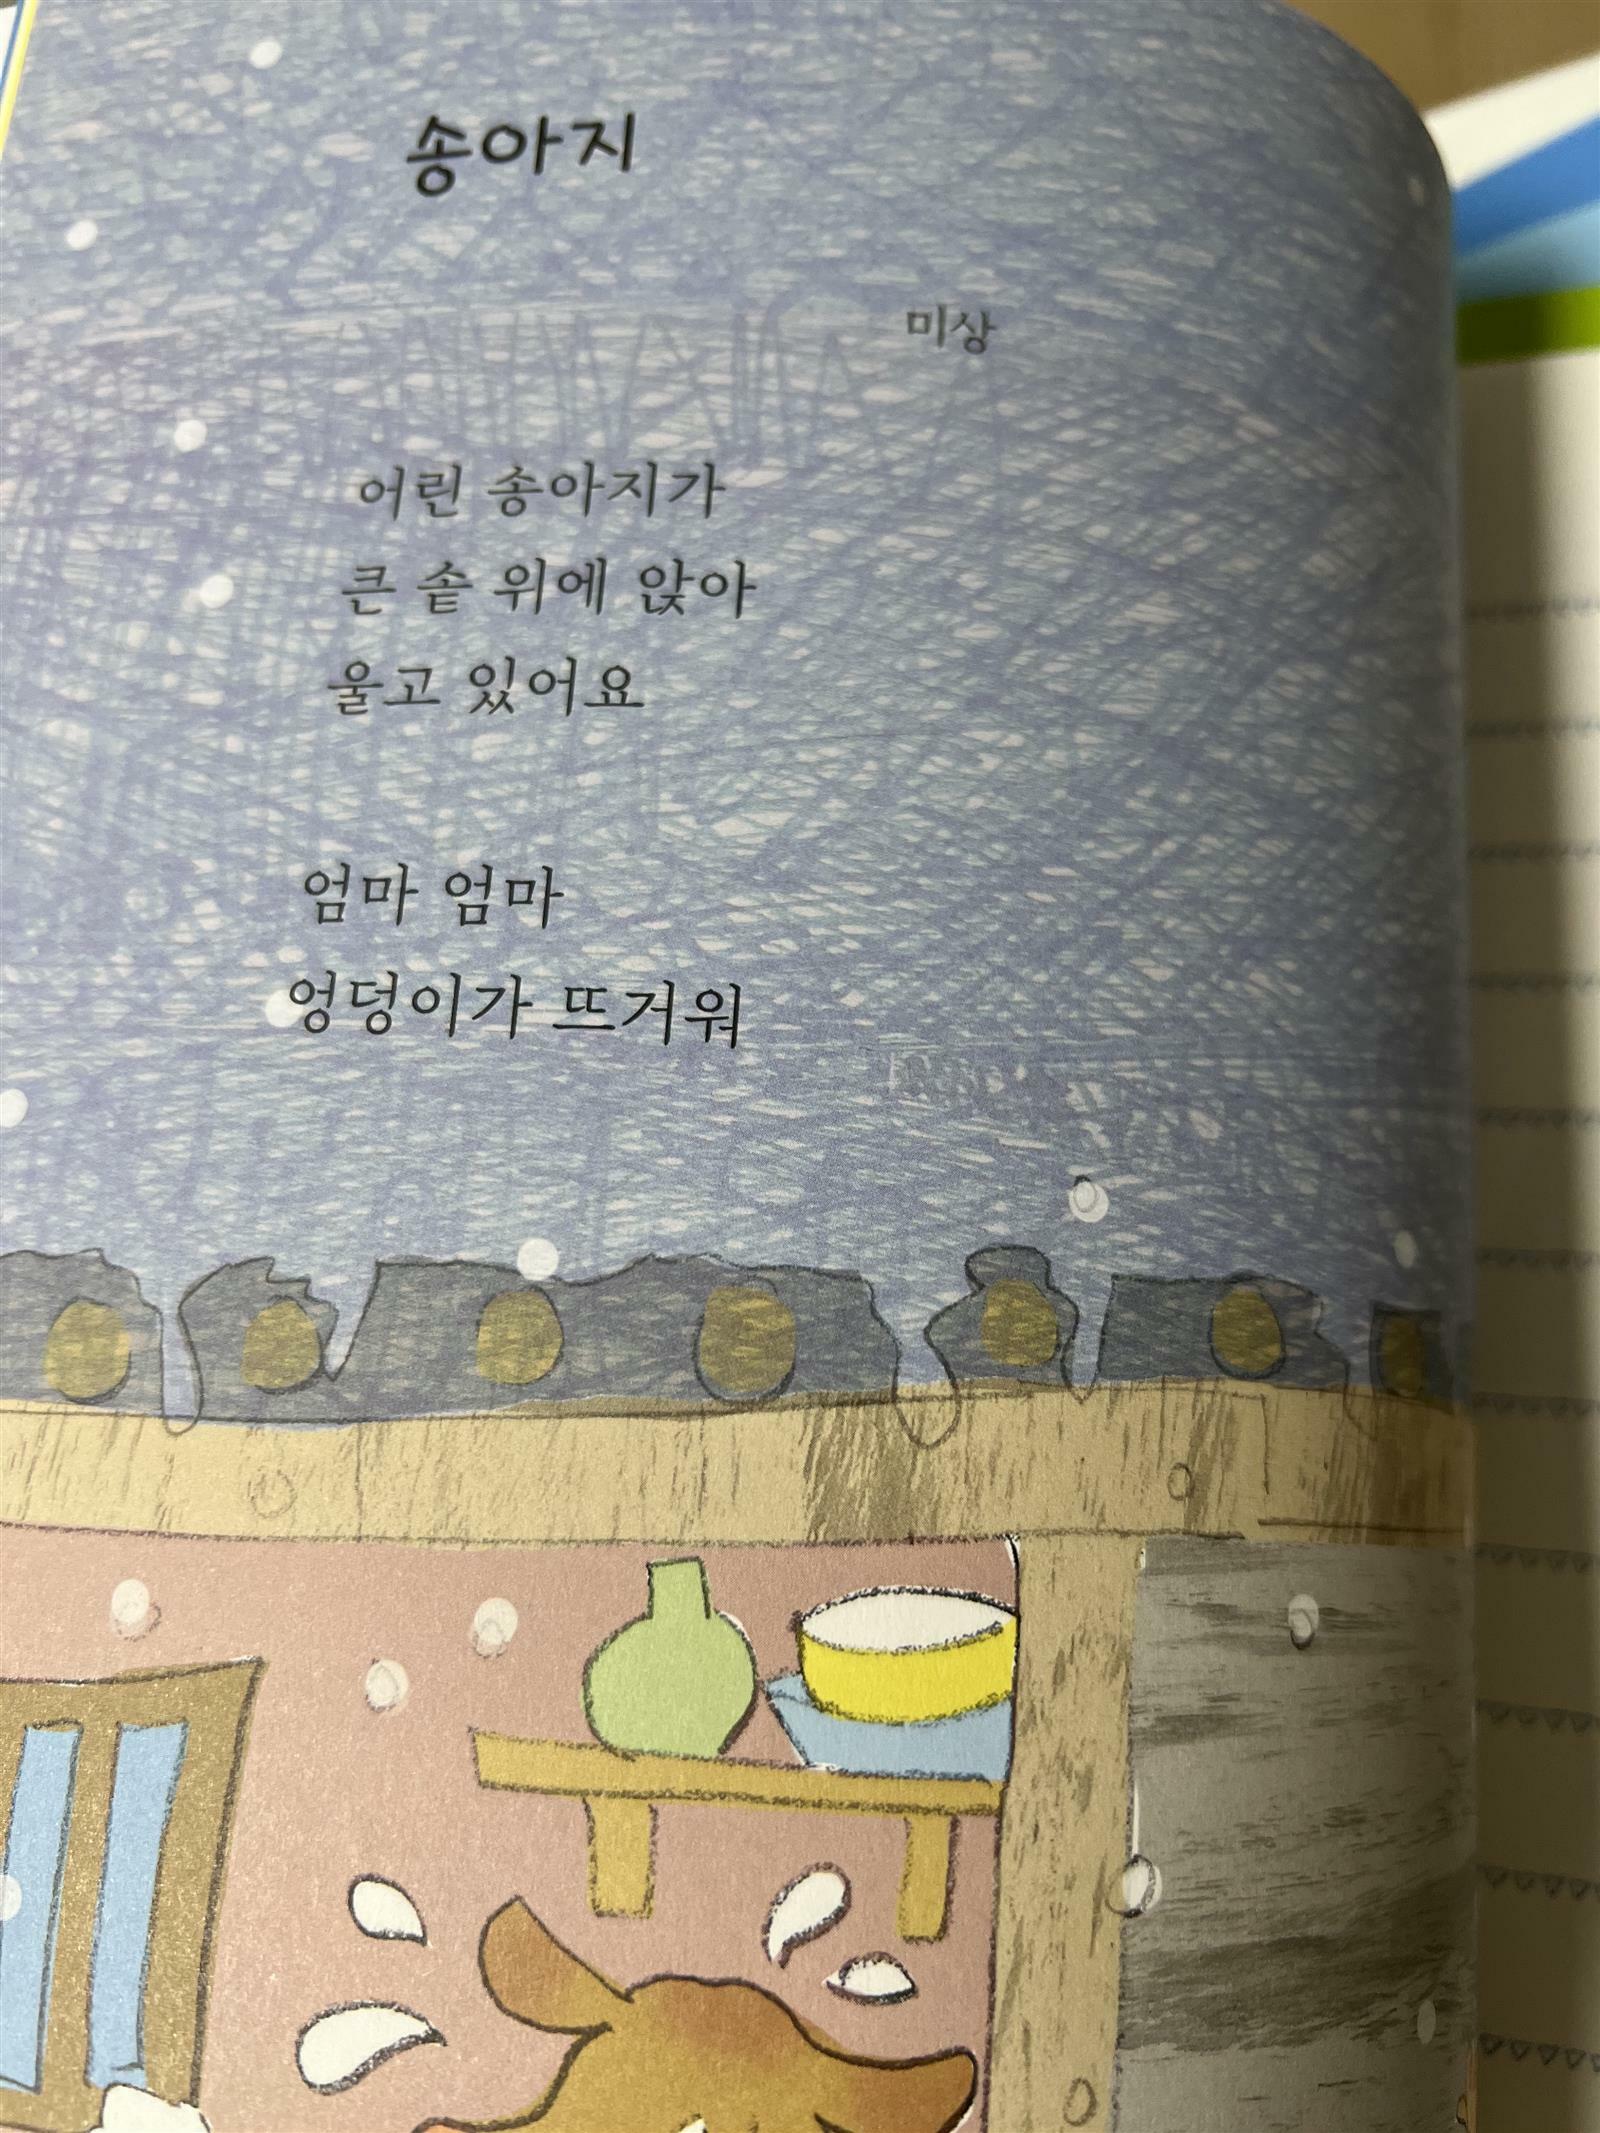 송아지
미상
어린 송아지가
큰 솥 위에 앉아
울고 있어요
엄마 엄마
엉덩이가 뜨거워